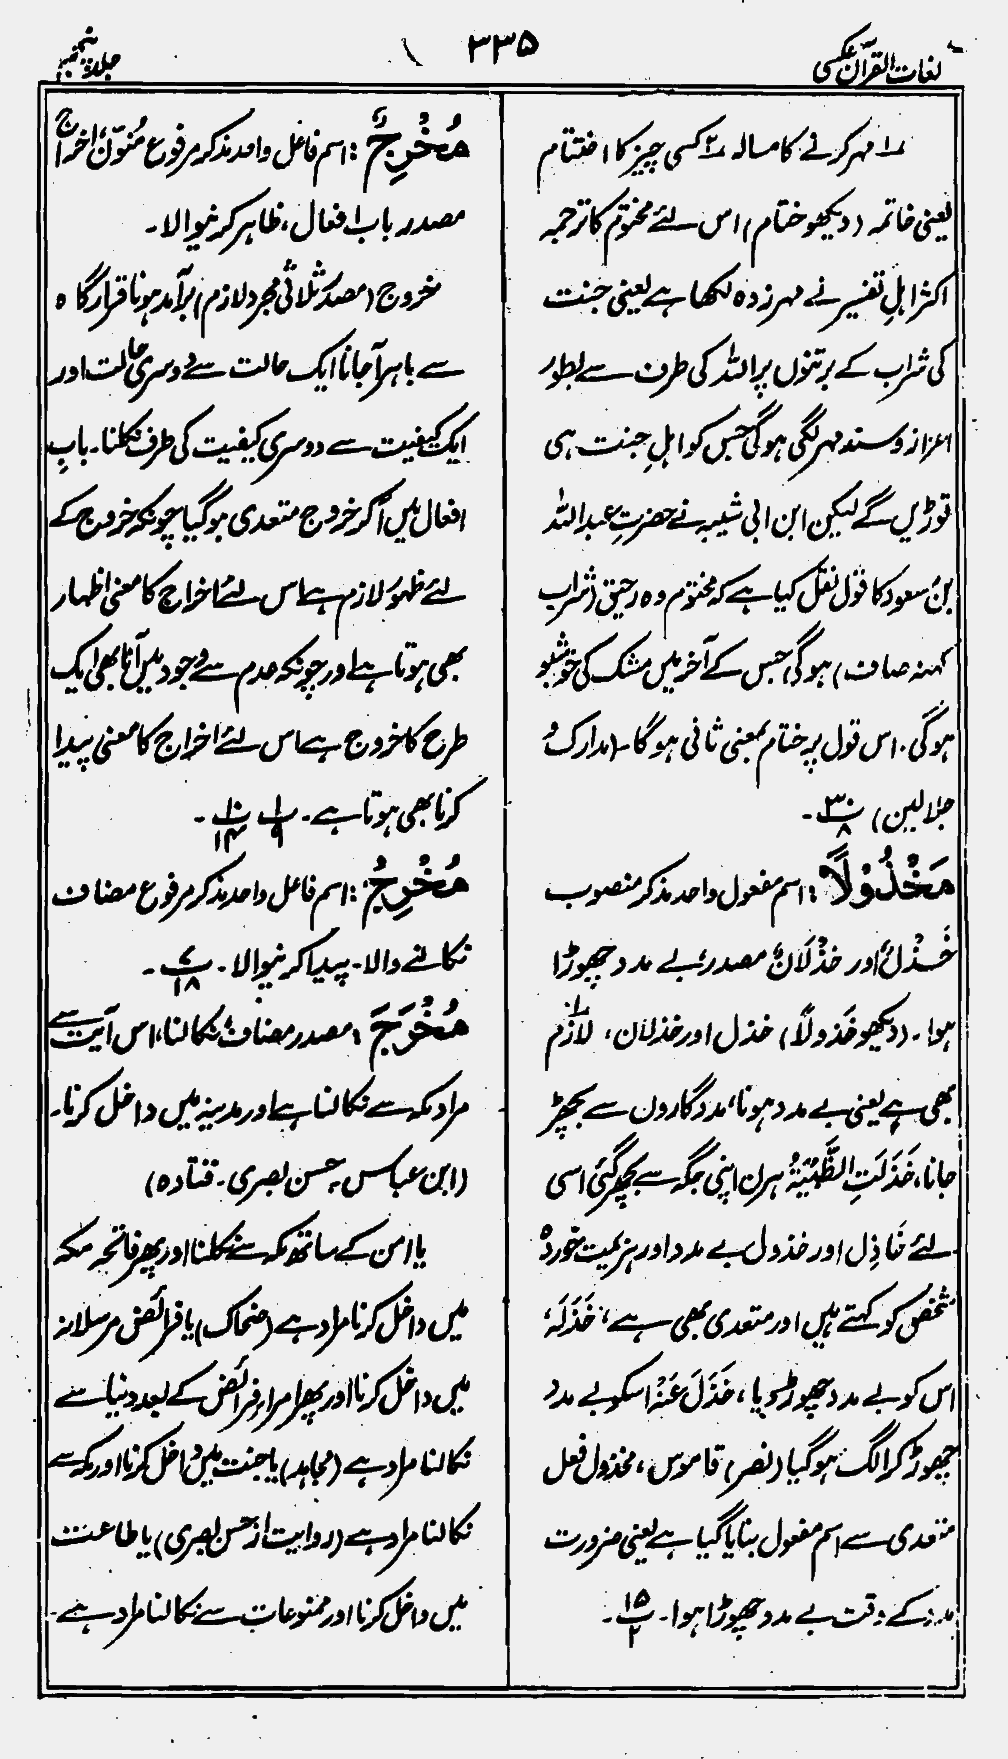 لغات القرآن عکسی
۳۳۵
جلد پنجم
۱؎ مہر کرنے کا مسالہ ۲؎ کسی چیز کا اختتام
یعنی خاتمہ (دیکھو ختام) اس لئے مختوم کا ترجمہ
اکثر اہلِ تفسیر نے مہر زدہ لکھا ہے یعنی جنت
کی شراب کے برتنوں پر اللہ کی طرف سے بطور
اعزاز و سند مہر لگی ہوگی جس کو اہلِ جنت ہی
توڑیں گے لیکن ابن ابی شیبہ نے حضرت عبداللہ
بن مسعود کا قول نقل کیا ہے کہ مختوم وہ رحیق (شراب
کہنہ صاف) ہوگی جس کے آخر میں مشک کی خوشبو
ہوگی۔ اس قول پر ختام بمعنی ثانی ہوگا۔ (مدارک و
جلالین) پ۳۰ ۸ ۔
مَخْذُوْلًا: اسم مفعول واحد مذکر منصوب
خَذْلٌ اور خِذْلَانٌ مصدر، بے مدد چھوڑا
ہوا۔ (دیکھو خَذُولًا) خذل اور خذلان، لازم
بھی ہے یعنی بے مدد ہونا، مددگاروں سے بچھڑ
جانا، خَذَلَتِ الظَّبْيَةُ ہرن اپنی جگہ سے بچھڑ گئی اسی
لئے خَاذِل اور خذول بے مدد اور ہزیمت خوردہ
شخص کو کہتے ہیں اور متعدی بھی ہے، خَذَلَهٗ
اس کو بے مدد چھوڑ دیا، خَذَلَ عَنْهُ اسکو بے مدد
چھوڑ کر الگ ہوگیا (نصر) قاموس، مخذول فعل
متعدی سے اسم مفعول بنایا گیا ہے یعنی ضرورت
مدد کے وقت بے مدد چھوڑا ہوا۔ پ۱۵ ۲ ۔
مُخْرِجٌ: اسم فاعل واحد مذکر مرفوع مُنوّن، اخراج
مصدر باب افعال، ظاہر کرنیوالا۔
خروج (مصدر ثلاثی مجرد لازم) برآمد ہونا قرار گاہ
سے باہر آجانا ایک حالت سے دوسری حالت اور
ایک کیفیت سے دوسری کیفیت کی طرف نکلنا۔ بابِ
افعال میں آکر خروج متعدی ہوگیا چونکہ خروج کے
لئے ظہور لازم ہے اس لئے اخراج کا معنی اظہار
بھی ہوتا ہے اور چونکہ عدم سے وجود میں آنا بھی ایک
طرح کا خروج ہے اس لئے اخراج کا معنی پیدا
کرنا بھی ہوتا ہے۔ پ۱ ۹ پ۱۰ ۱۴ ۔
مُخْرِجُ: اسم فاعل واحد مذکر مرفوع مضاف
نکالنے والا۔ پیدا کرنیوالا۔ پ۷ ۱۸ ۔
مُخْرَجَ: مصدر مضاف، نکالنا، اس آیت سے
مراد مکہ سے نکالنا ہے اور مدینہ میں داخل کرنا۔
(ابن عباس، حسن بصری۔ قتادہ)
یا امن کے ساتھ مکہ سے نکلنا اور پھر فاتحہ مکہ
میں داخل کرنا مراد ہے (ضحاک) یا فرائض مرسلانہ
میں داخل کرنا اور پھر امرارِ فرائض کے بعد دنیا سے
نکالنا مراد ہے (مجاہد) یا جنت میں داخل کرنا اور مکہ سے
نکالنا مراد ہے (روایت از حسن بصری) یا طاعت
میں داخل کرنا اور ممنوعات سے نکالنا مراد ہے۔